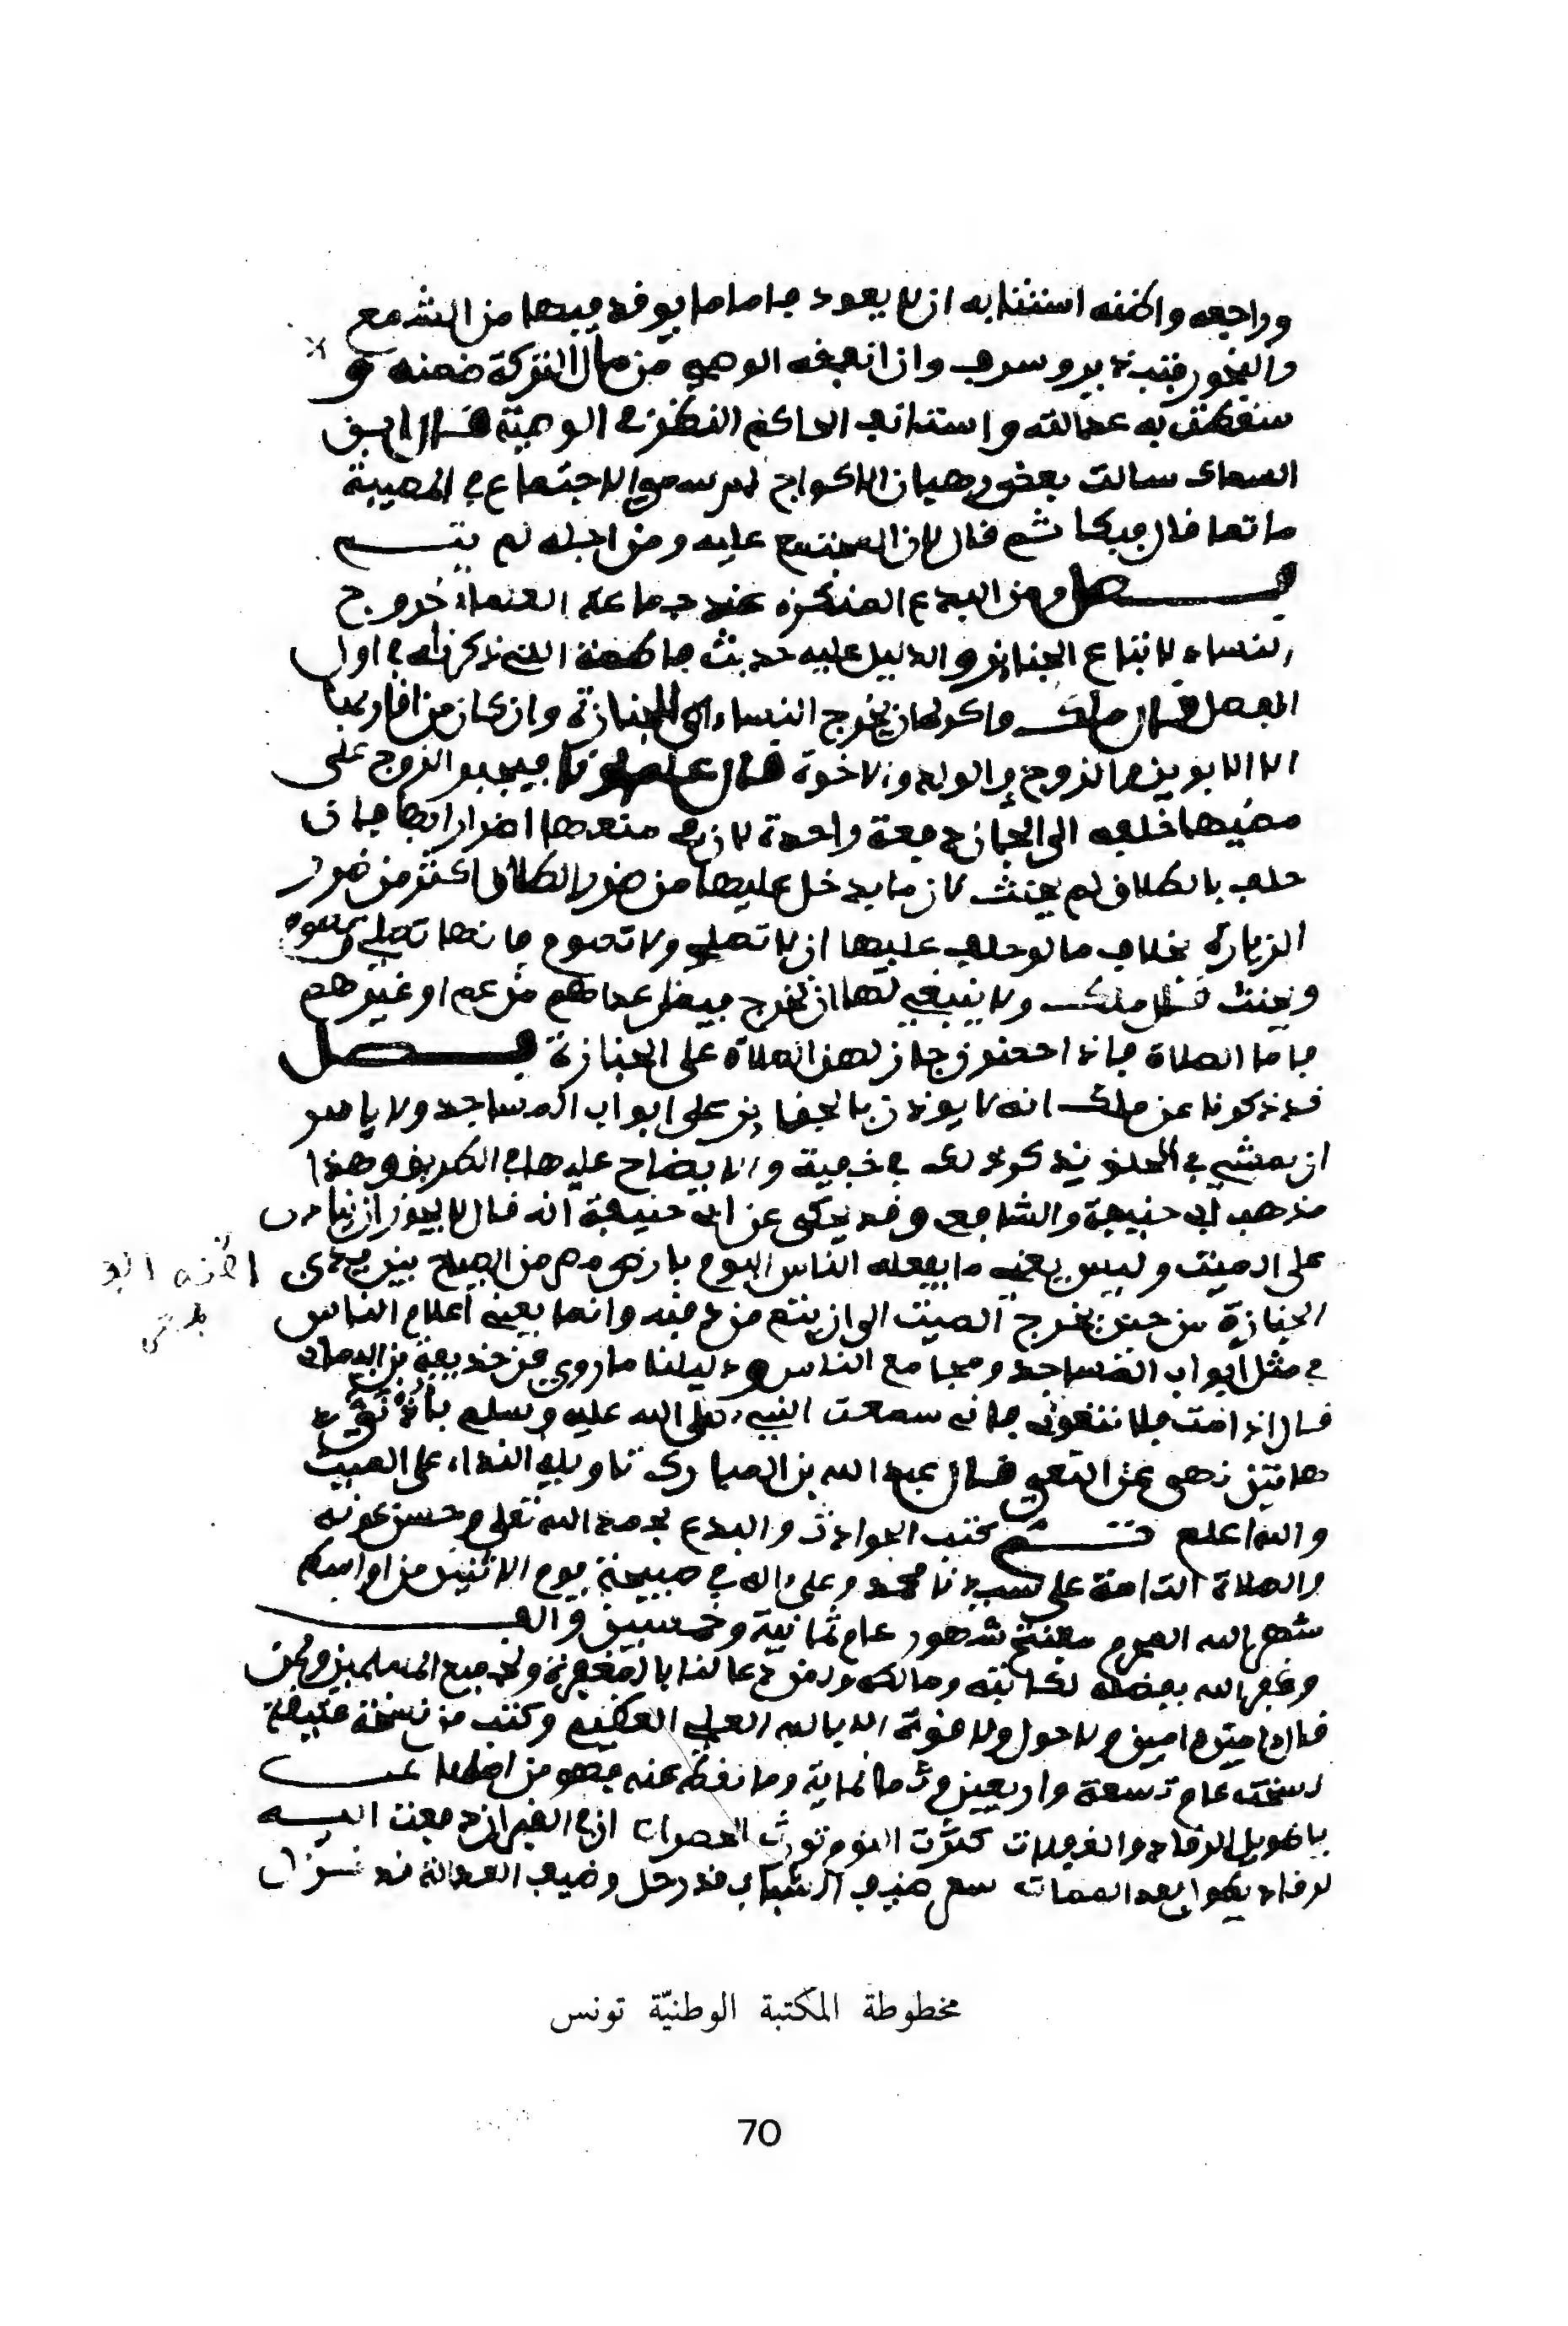 وراجعه واظنه استتابه ان لا يعود فاما ما يوقد فيها من الشمع
والبخور فتبذير وسرف وان انفقه الوصي من مال التركة ضمنه و
سقطت به عدالته واستانف الحاكم النظر في الوصية قال ابن
السماك سالت بعض رهبان الاكواخ لم سمي الاجتماع في المصيبة
ماتما قال فبكا ثم قال لان المجتمع عليه ومن اجله لم يتم
فصل ومن البدع المنكرة عند جماعة العلماء خروج
النساء لاتباع الجنائز والدليل عليه حديث فاطمة الذي ذكرناه في اول
الفصل قال ملك واكره ان يخرج النساء الى الجنازة وان كان من اقاربها
الا الابوين والزوج والولد والاخوة قال فيجبر الزوج على
مضيها خلفه الى الجناز دفعة واحدة لان في منعها اضرارا بها فان
حلف بالطلاق لم يحنث لان ما يدخل عليها من ضرر الطلاق اكثر من ضرر
الزيارة بخلاف ما لو حلف عليها ان لا تصلي ولا تصوم فانها تصلي وتصوم
ويحنث قال ملك ولا ينبغي لها ان تخرج فيمن عداهم من عم او غيرهم
فاما الصلاة فاذا احضرن جاز لهن الصلاة على الجنازة فصل
قد ذكرنا عن ملك انه لا يوذن بالجنايز على ابواب المساجد ولا باس
ان يمشي في الحلق يذكر ذلك في خفية ولا يصاح عليها في الطريق وهذا
مذهب ابي حنيفة والشافعي وقد يحكى عن ابي حنيفة انه قال لا يجوز ان ينادى
على الميت وليس يعني ما يفعله الناس اليوم بارض مصر من الصياح بين يدي
الجنازة من حين يخرج الميت الى ان يتم من دفنه وانما يعني اعلام الناس
في مثل ابواب المساجد ومجامع الناس ودليلنا ما روي عن حذيفة بن اليمان
قال اذا مت فلا تنعوني فاني سمعت النبي صلى الله عليه وسلم
هاتين نهى عن النعي قال عبد الله بن المبارك تاويله النداء على الميت
والله اعلم تـــم كتب الحوادث والبدع بحمد الله تعلى وحسن عونه
والصلاة التامة على سيدنا محمد وعلى اله في صبيحة يوم الاثنين من اواسط
شهر الله المحرم مفتتح شهور عام ثمانية وخمسين والف
وغفر الله بفضله لكاتبه ومالكه ولمن دعا لنا بالمغفرة ولجميع المسلمين ولمن
قال امين امين ولا حول ولا قوة الا بالله العلي العظيم وكتب من نسخة عتيقة
نسخت عام تسعة واربعين وثمانماية وما نقص عنه فهو من اصلها
يا طويل الرقاد والغفلات كثرت النوم تورث الحسرات ان في القبر ان دفعت اليه
لرقاد يطول بعد الممات قد رحل وضيف قد نزل
مخطوطة المكتبة الوطنيّة تونس
70